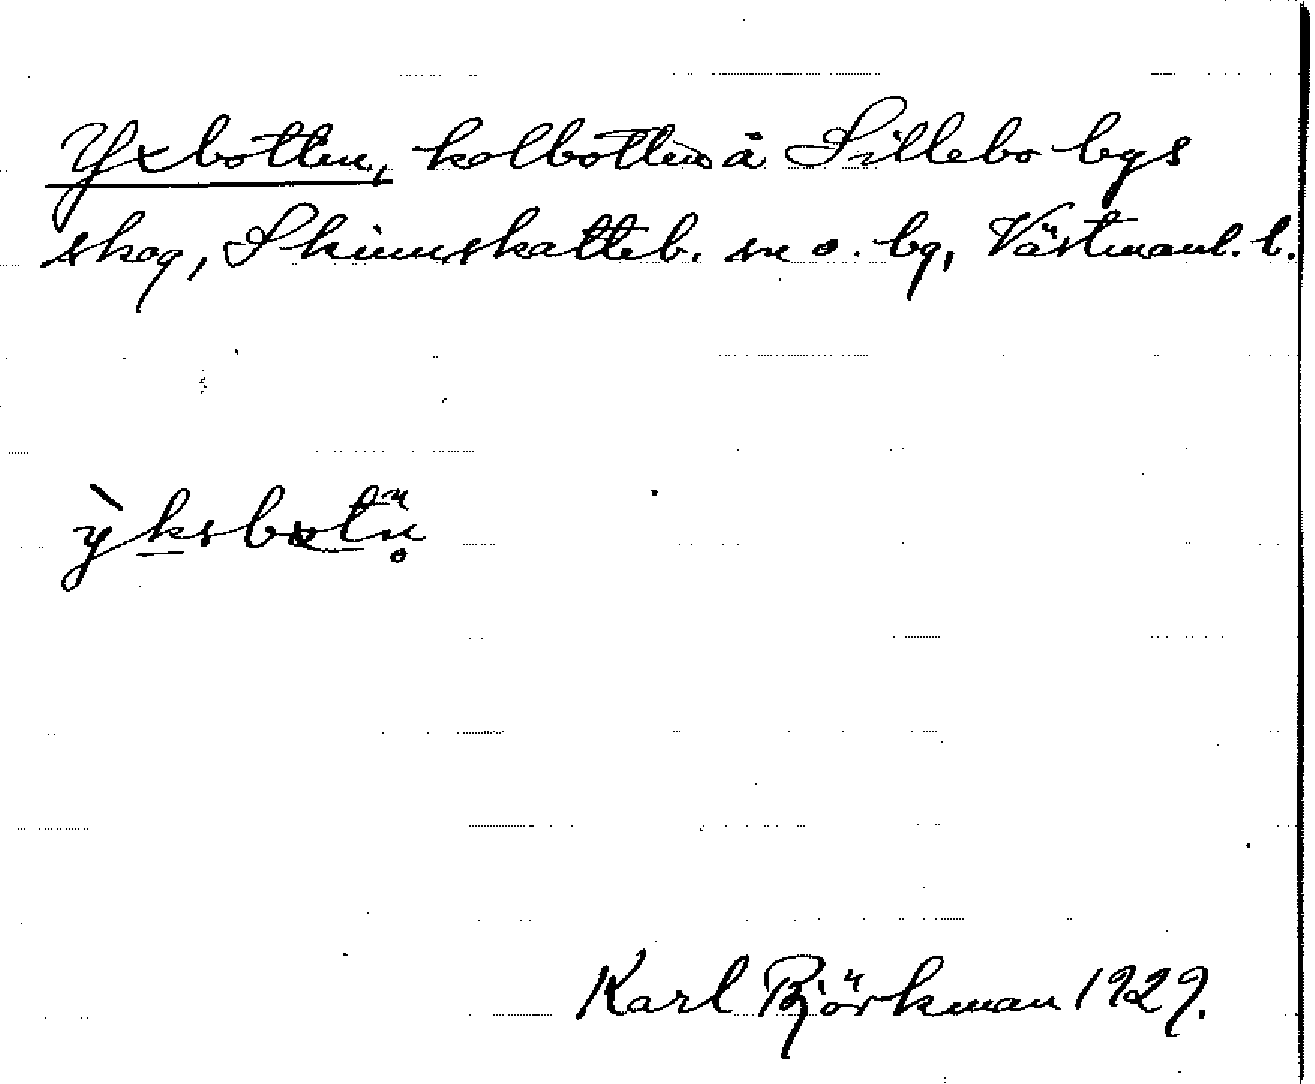 Yxbotten, kolbotten å Sillebo bys
skog, Skinnskatteb. sn o. by, Västmanl. l.
Karl Björkman 1929.